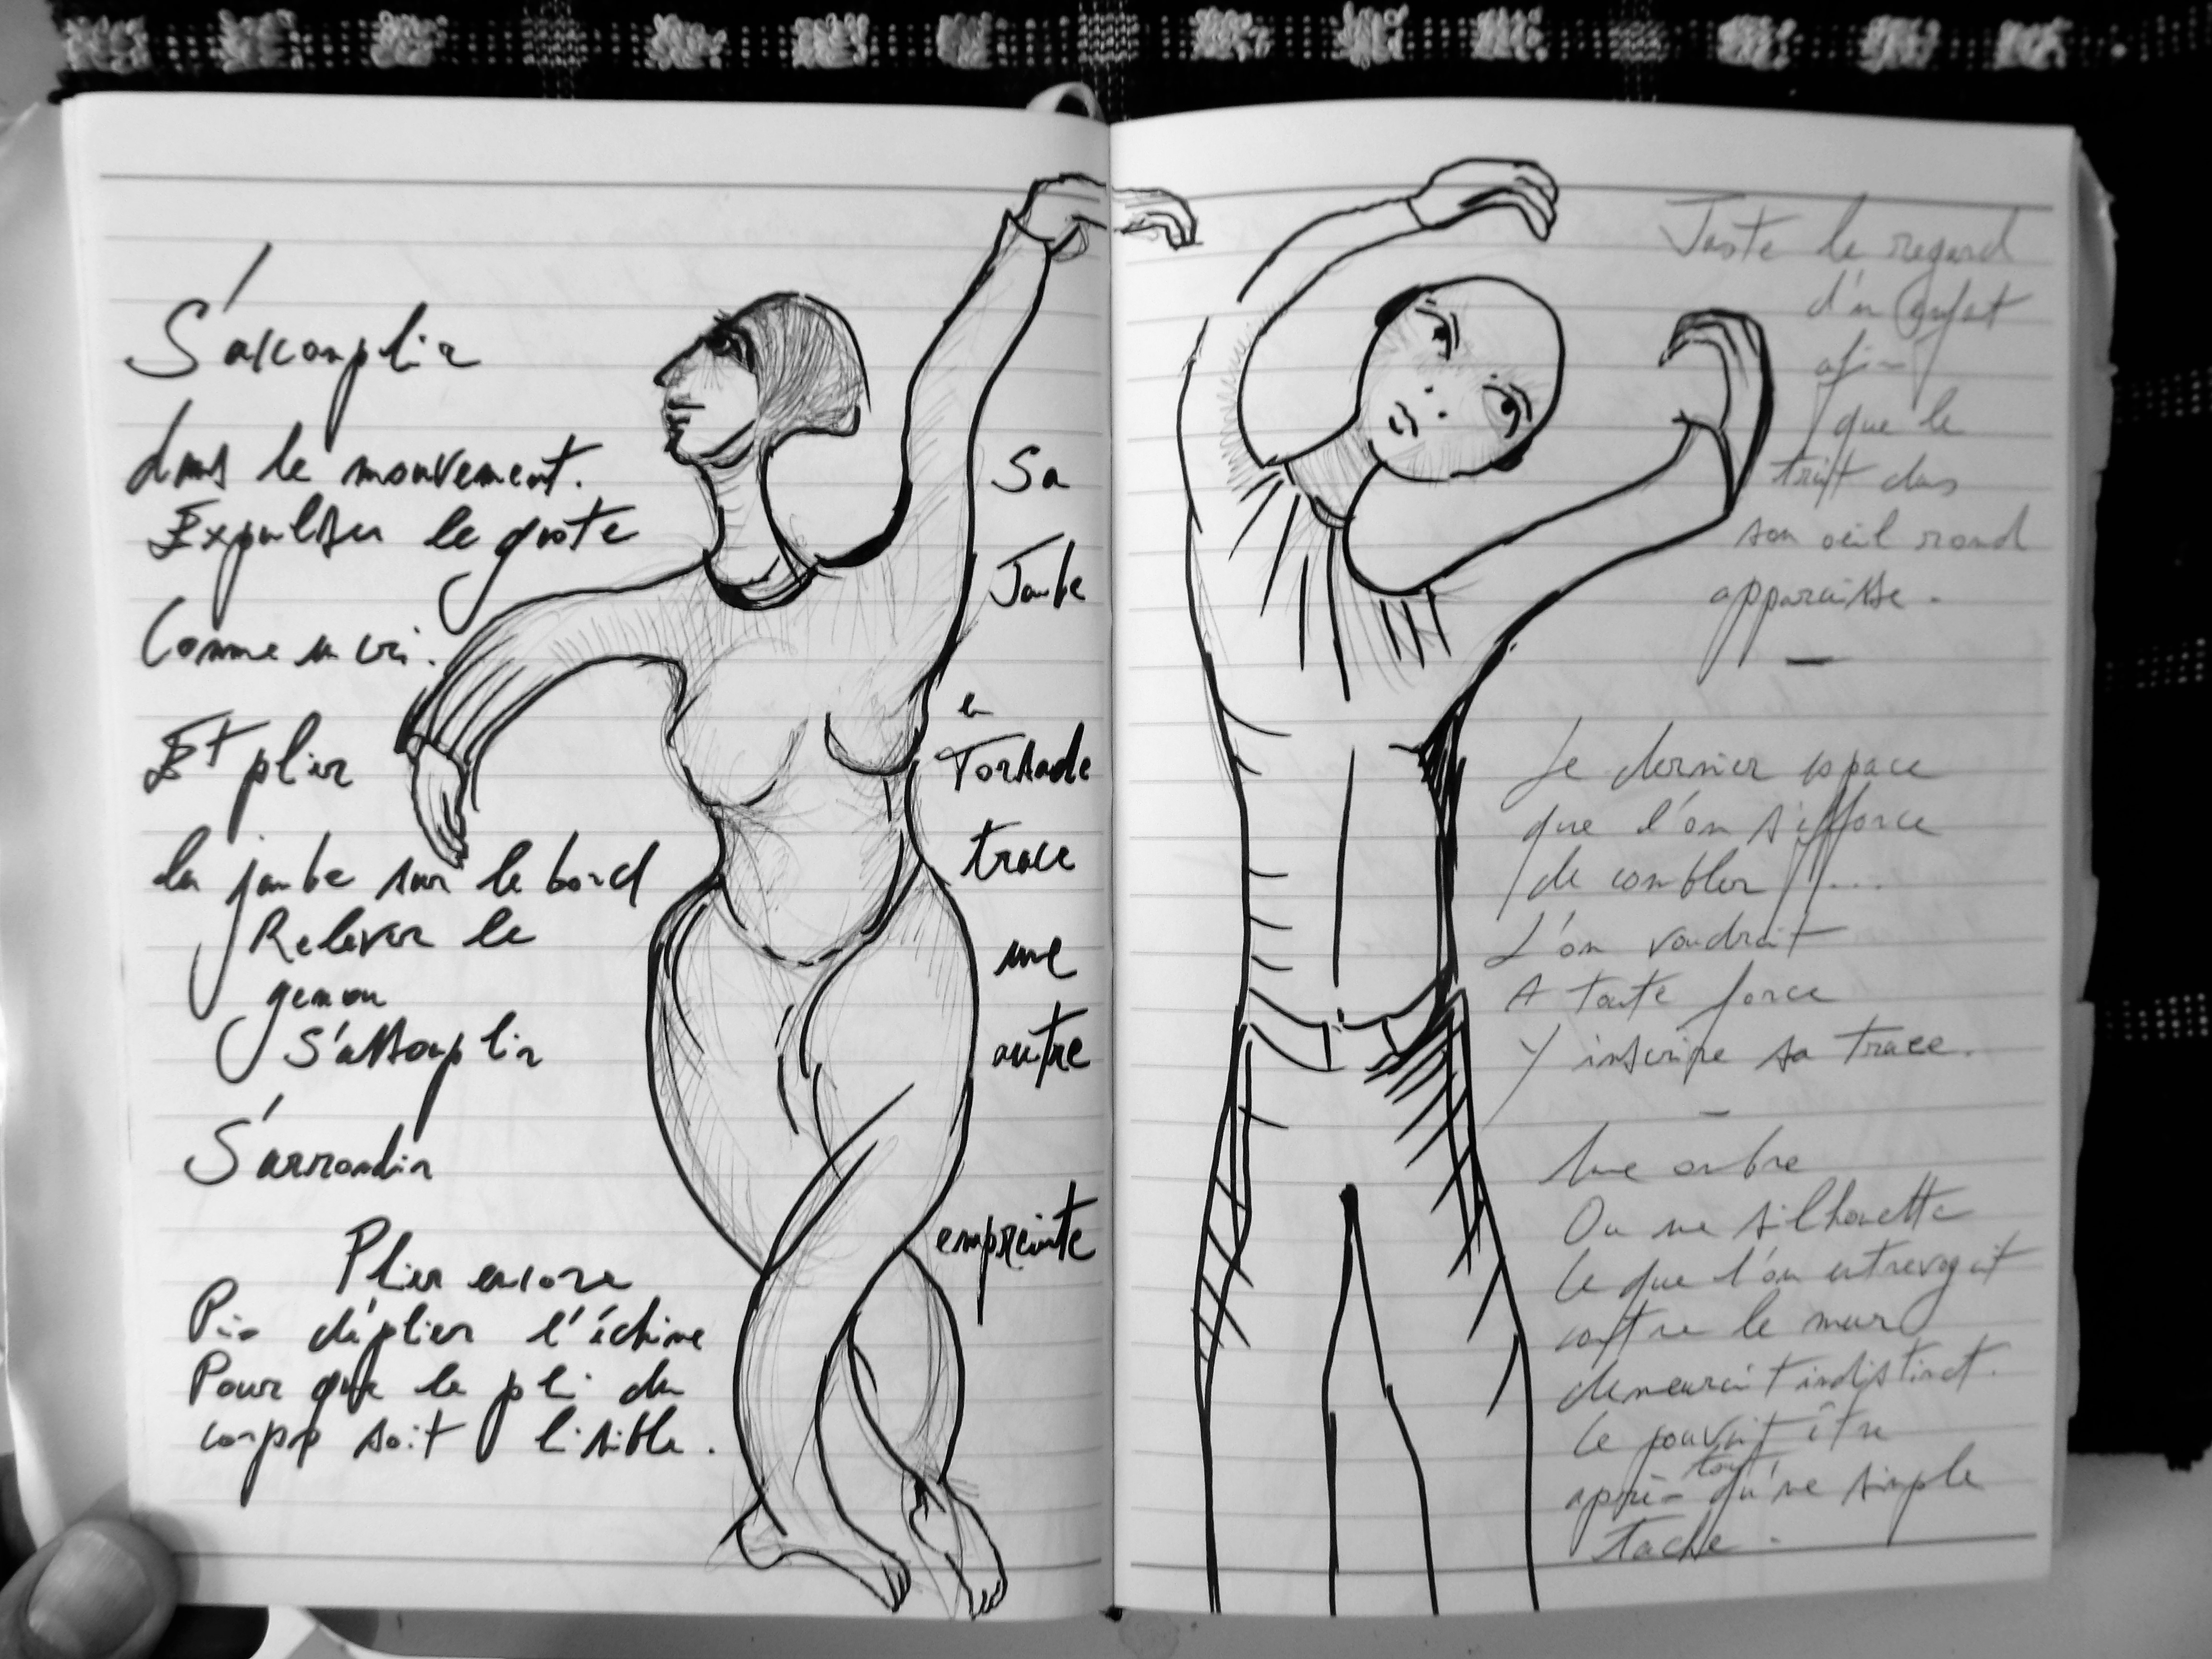 S'accomplir
dans le mouvement.
Expulser le geste
Comme un cri.
Et plier
la jambe sur le bord
Relever le
genou
S'assouplir
S'arrondir
Plier encore
Puis déplier l'échine
Pour que le pli du
corps soit lisible.
Sa
Jambe
en
Torsade
trace
une
autre
empreinte
Juste le regard
d'un Enfant
afin
que le
trait dans
son oeil rond
apparaisse.
Le dernier espace
que l'on s'efforce
de combler ....
L'on voudrait
A toute force
Y inscrire sa trace.
Une ombre
Ou une silhouette
Ce que l'on entrevoyait
contre le mur
demeurait indistinct.
Ce pouvait être
après tout qu'une simple
tache.